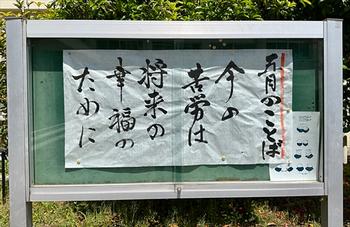 五月のことば
今の
苦労は
将来の
幸福の
ために